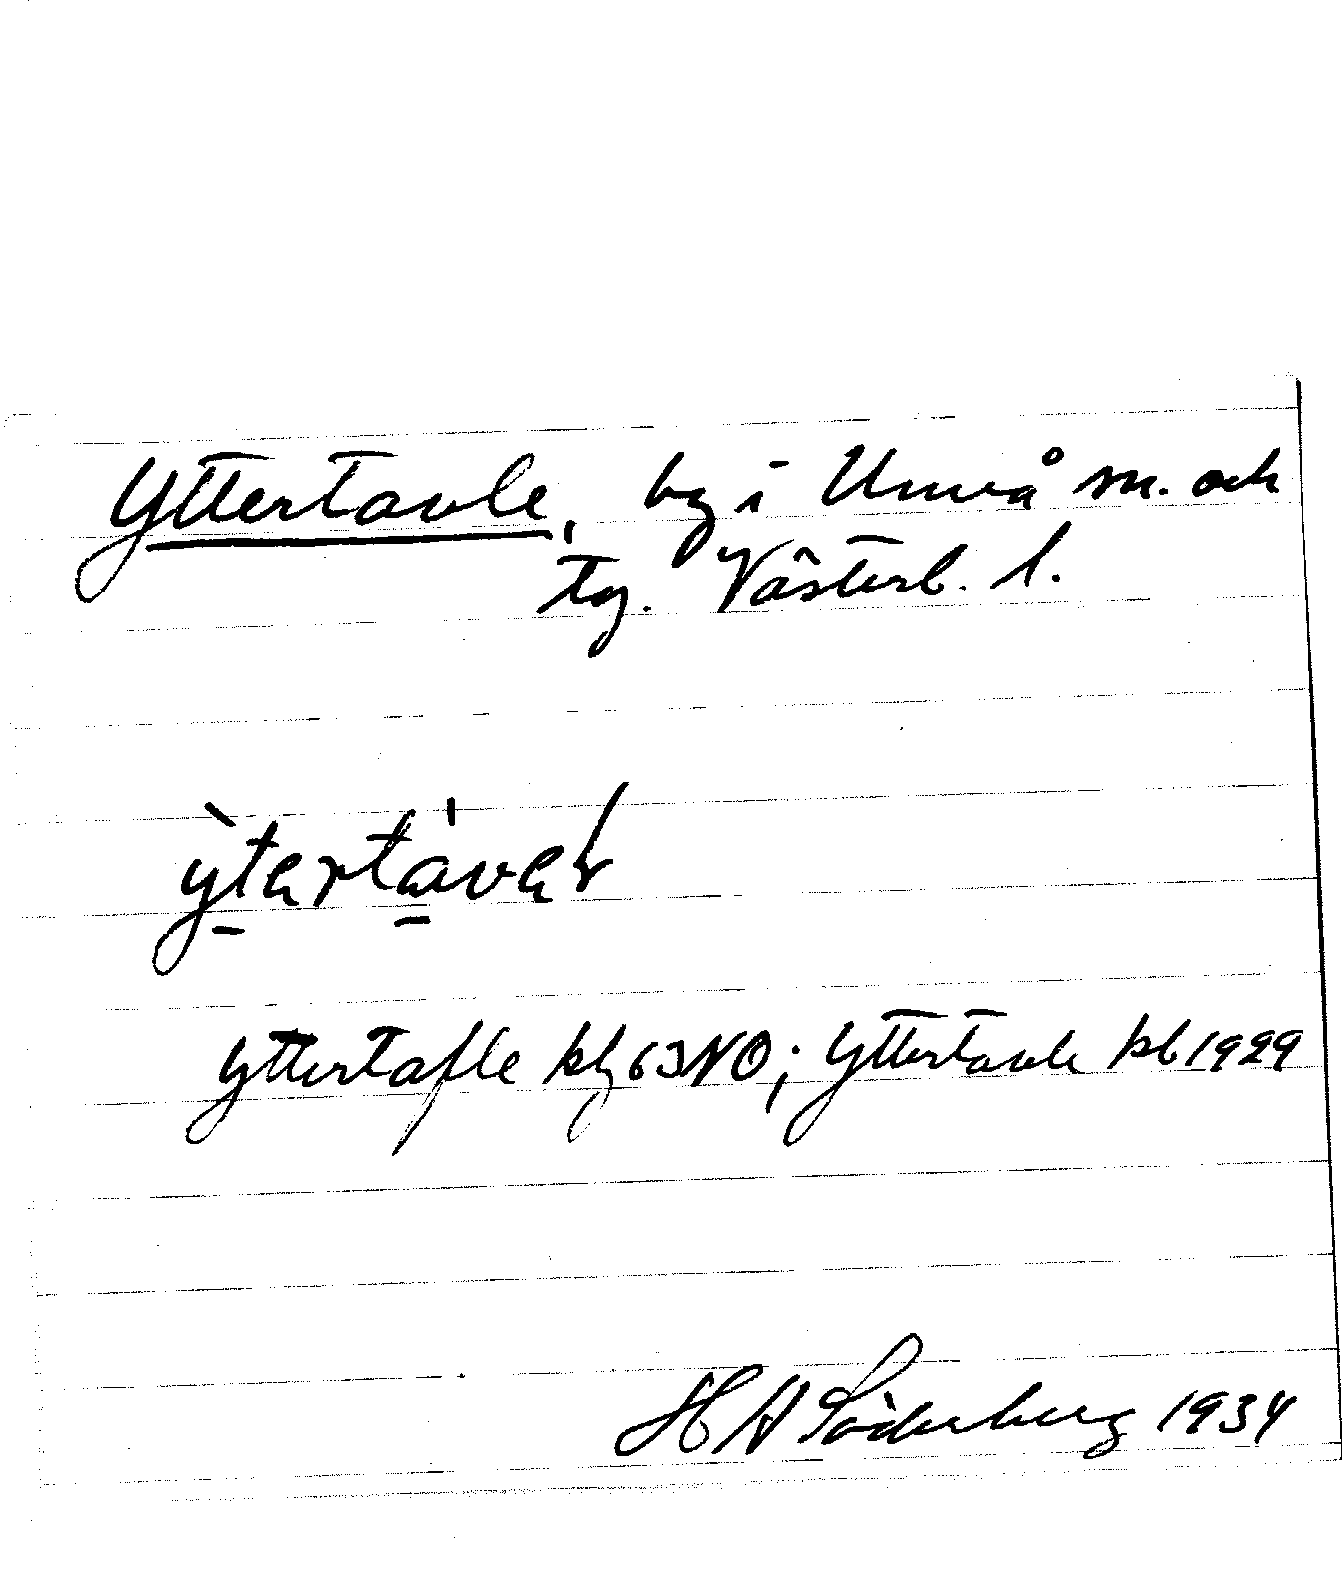 Yttertavle, by i Umeå sn. och
tg. Västerb. l.
ỳtertávaɽ
Yttertafle kbl 63NO; Yttertavle kb 1929
H A Söderberg 1934